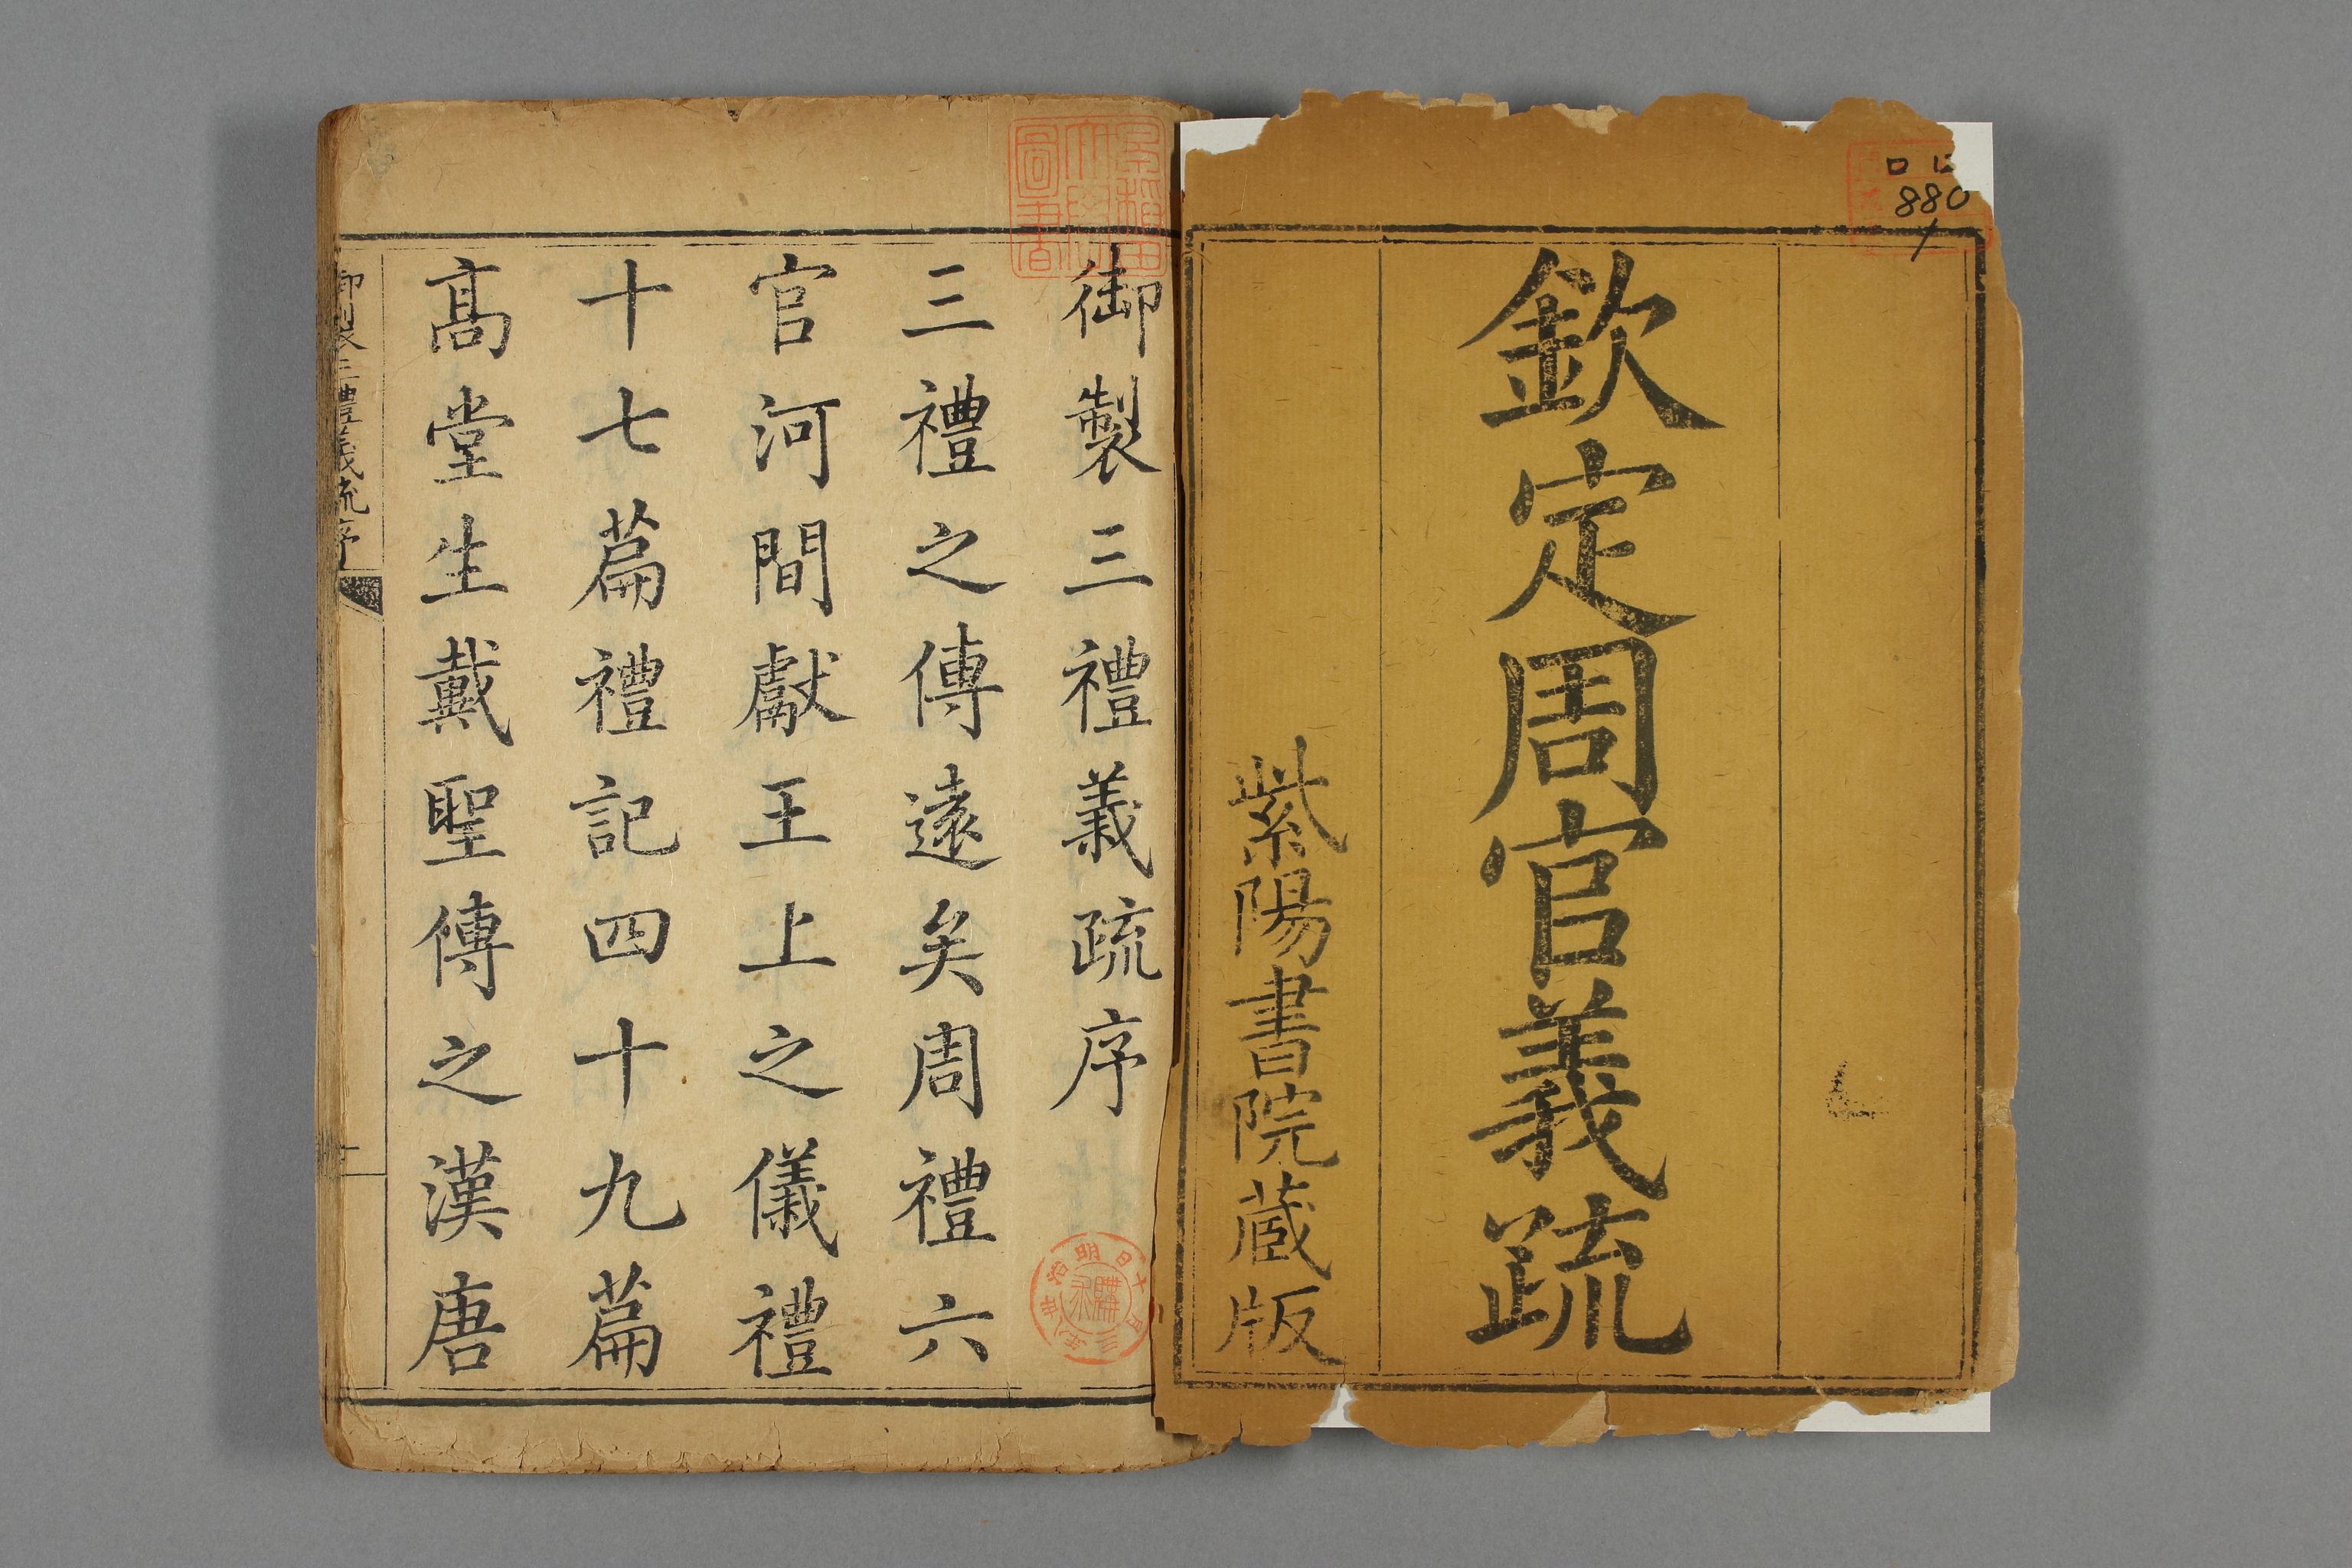 欽定周官義疏
紫陽書院蔵版
880
1
御製三禮義疏序
三禮之傳遠矣周禮六
官河間獻王上之儀禮
十七篇禮記四十九篇
高堂生戴聖傳之漢唐
御製三禮義疏序